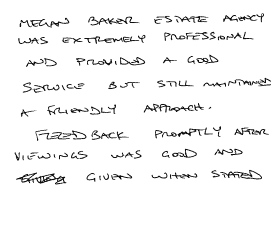 MEGAN BAKER ESTATE AGENCY
WAS EXTREMELY PROFESSIONAL
AND PROVIDED A GOOD
SERVICE BUT STILL MAINTAINED
A FRIENDLY APPROACH.
FEEDBACK PROMPTLY AFTER
VIEWINGS WAS GOOD AND
GIVEN WHEN STATED